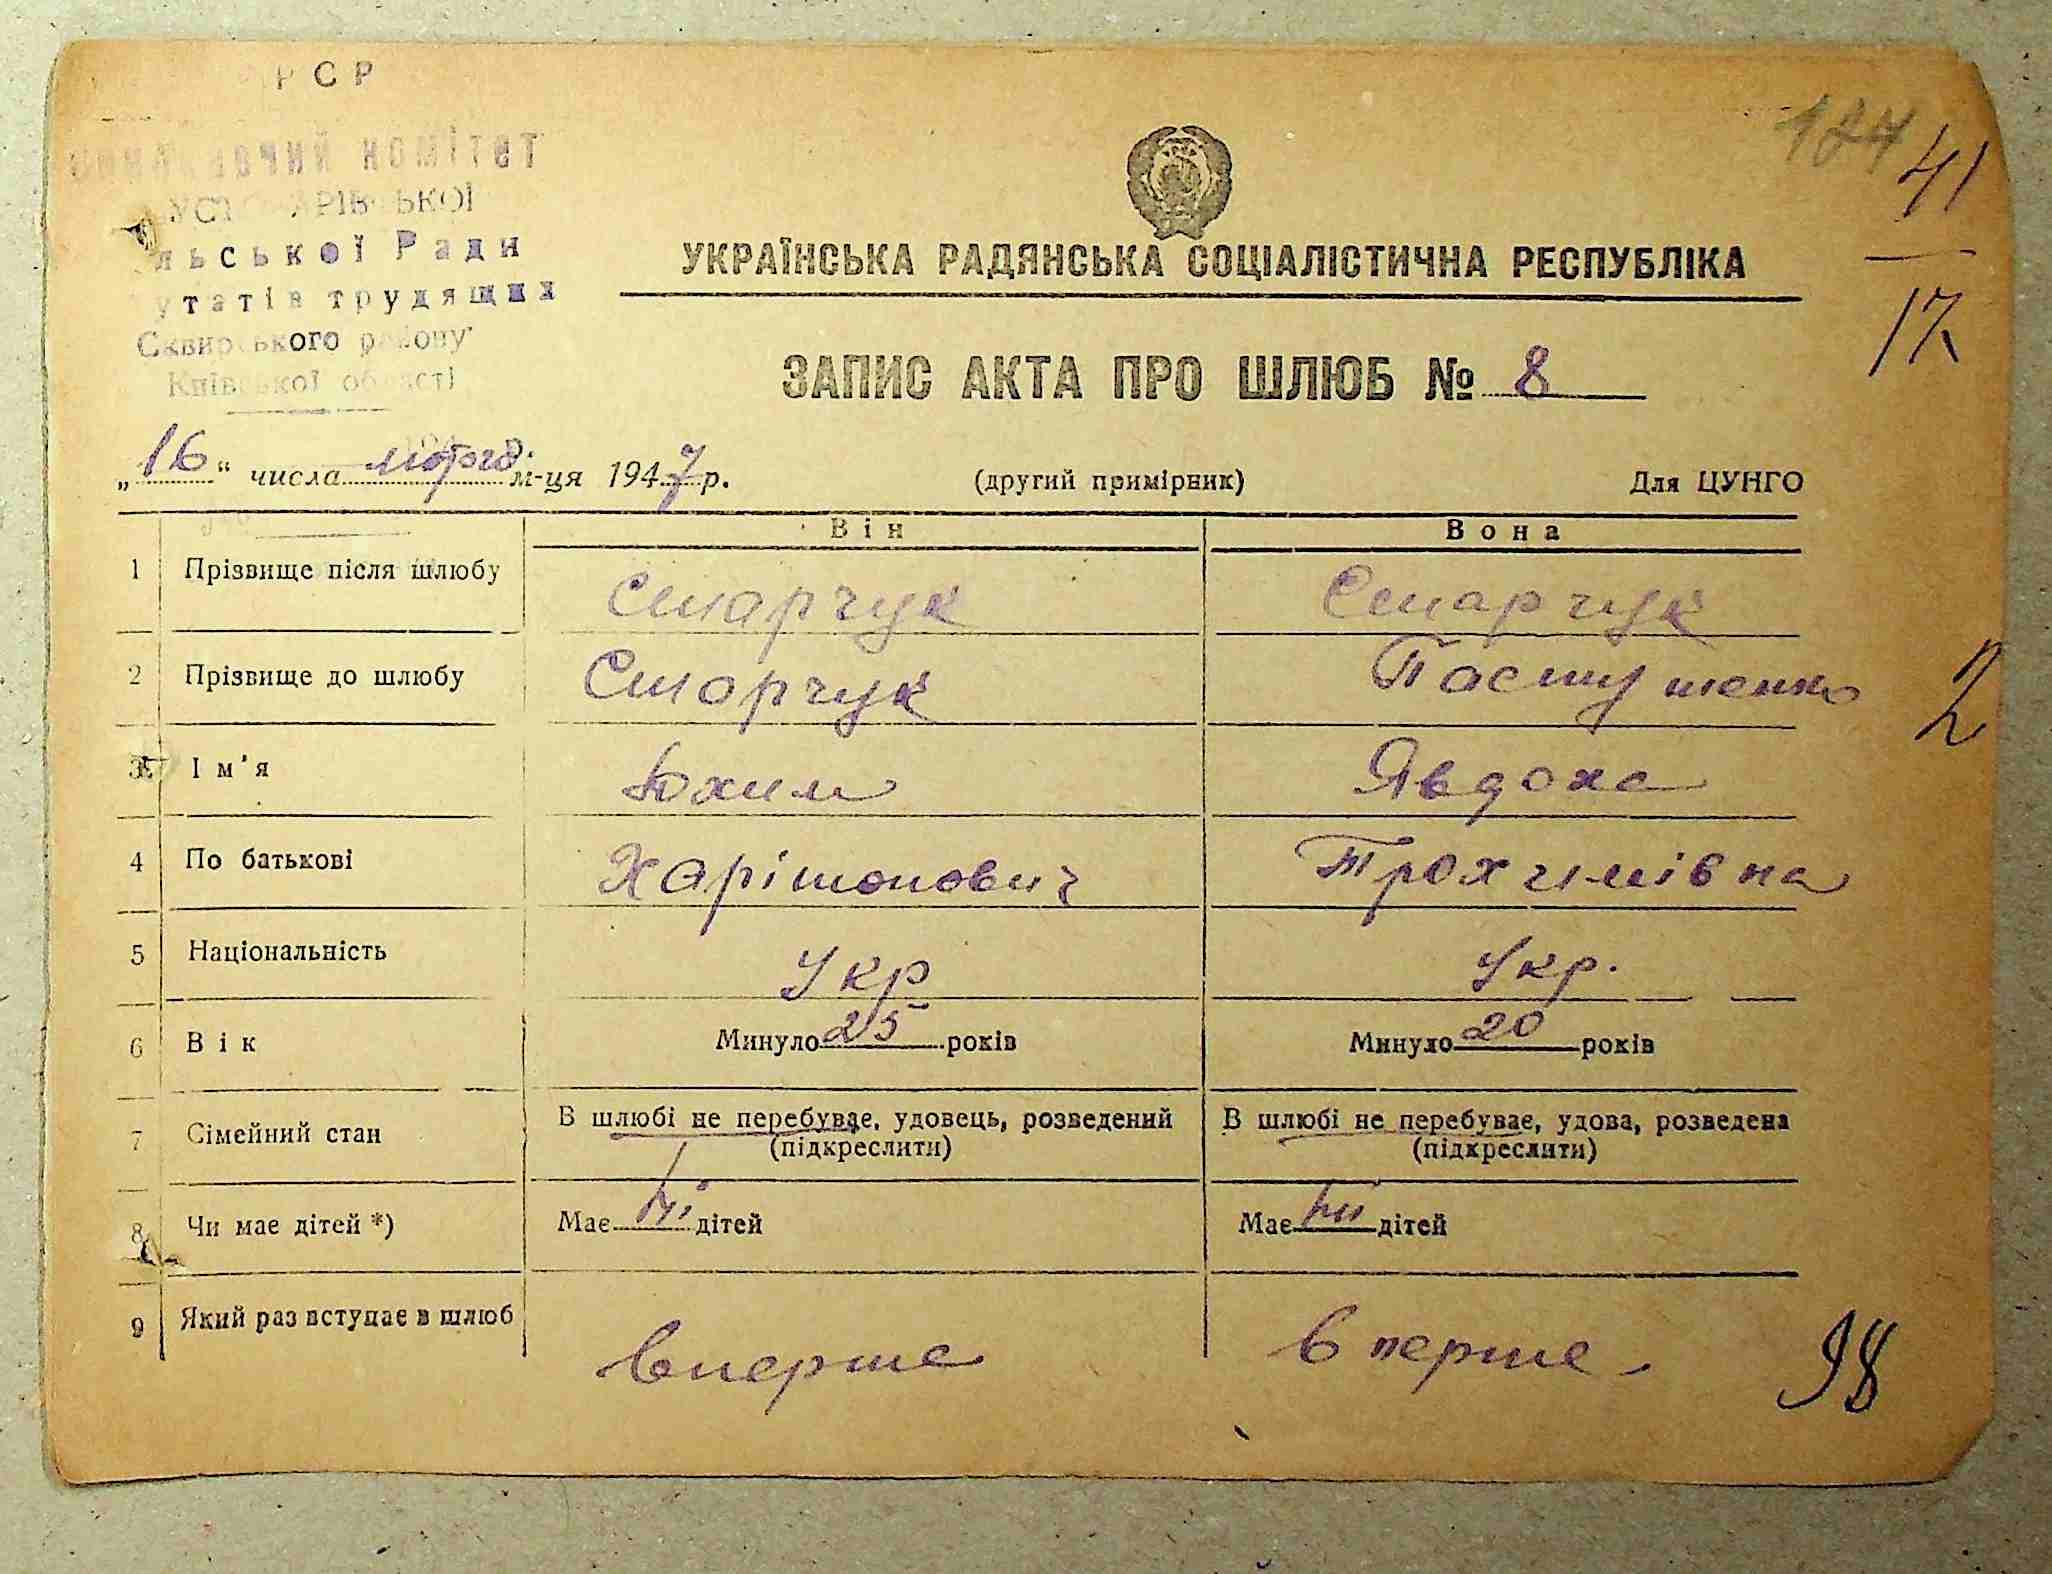 РСР
комітет
льської Ради
утатів трудящих
Сквирського району
Київської області
124
41
17
УКРАЇНСЬКА РАДЯНСЬКА СОЦІАЛІСТИЧНА РЕСПУБЛІКА
ЗАПИС АКТА ПРО ШЛЮБ № 8
„16“ числа марта м-ця 1947 р. (другий примірник) Для ЦУНГО
Він Вона
1 Прізвище після шлюбу Старчук Старчук
2 Прізвище до шлюбу Старчук Пастушенко
2
3 Ім'я Юхим Явдоха
4 По батькові Харітонович Трохимівна
5 Національність Укр Укр.
6 Вік Минуло 25 років Минуло 20 років
7 Сімейний стан В шлюбі не перебуває, удовець, розведений В шлюбі не перебуває, удова, розведена
(підкреслити) (підкреслити)
8 Чи має дітей *) Має ні дітей Має ні дітей
9 Який раз вступає в шлюб вперше вперше
98